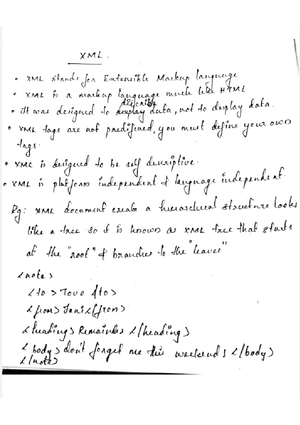 XML.
• XML stands for Extensible Markup language
• XML is a markup language much like HTML
• It was designed to describe data, not to display data.
• XML tags are not predifined, you must define your own
tags.
• XML is designed to be self descriptive.
• XML is platform independent & language independent.
Eg: XML document create a hierarchical structure looks
like a tree so it is known as XML tree that starts
at the "root" & branches to the "leaves"
<note>
<to> Tove </to>
<from> Jani </from>
<heading> Remainder </heading>
<body> don't forget me this weekend! </body>
</note>